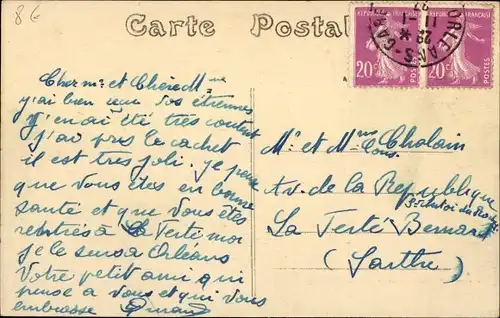 8€
Carte Postale
RÉPUBLIQUE FRANÇAISE
20c POSTES
20c POSTES
ORLEANS-GARE
Cher Mr et Chère Mme
j'ai bien reçu vos étrennes
j'en ai été très content
j'ai pris le cachet
il est très joli. je pense
que vous êtes en bonne
santé et que vous êtes
rentrés à La Ferté moi
je le suis à Orléans
Votre petit ami qui
pense à vous et qui vous
embrasse
Mr et Mme Cholain
Av. de la République
La Ferté Bernard
(Sarthe)